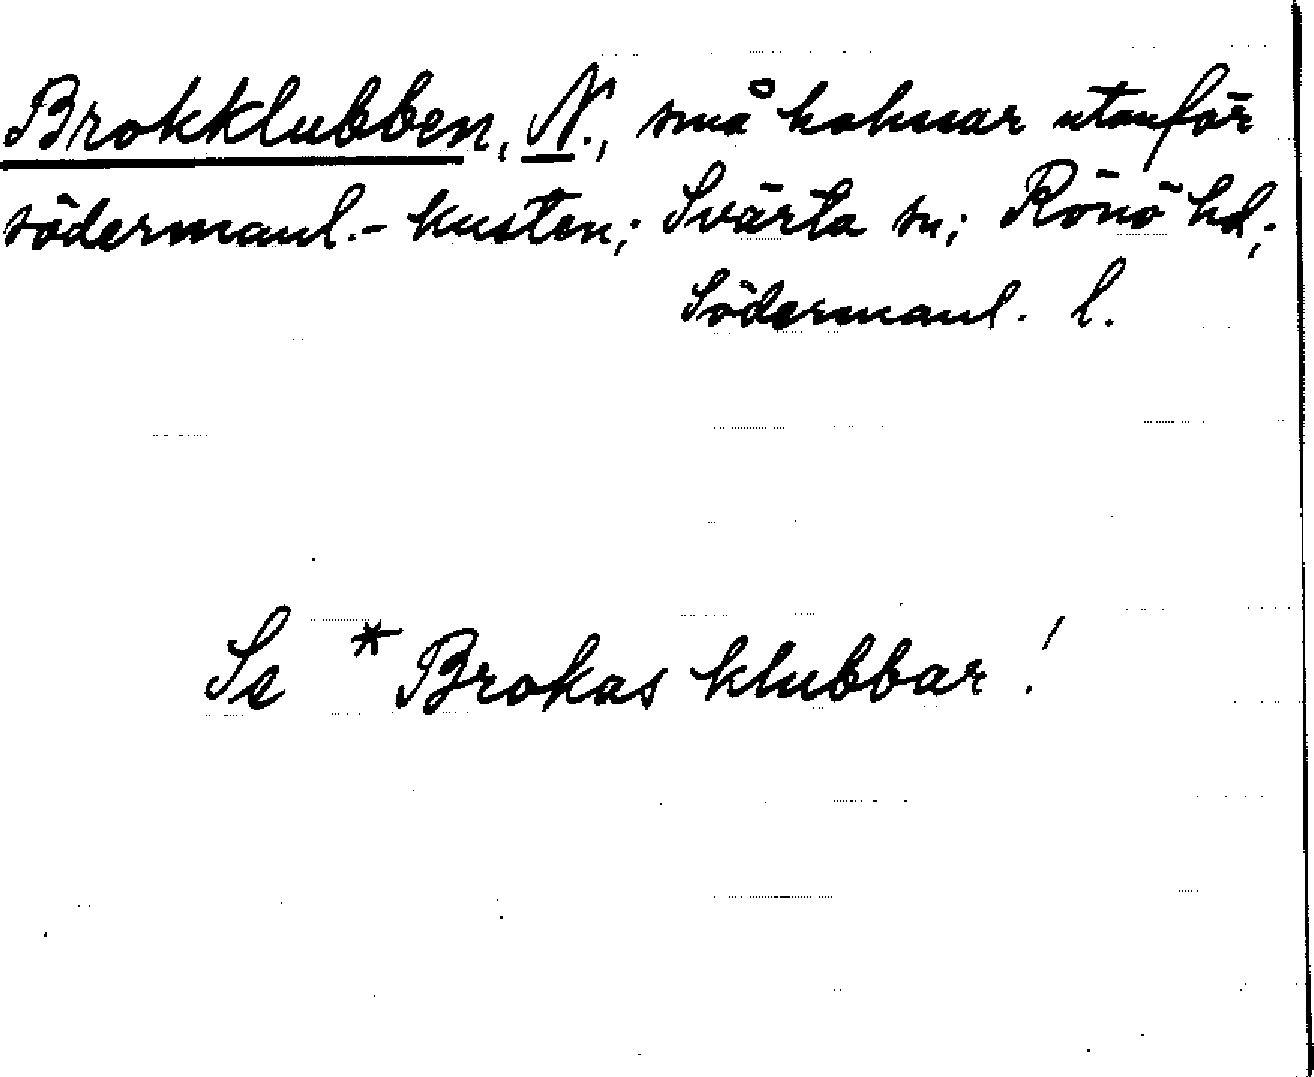 Brokklubben, N., små holmar utanför
södermanl.- kusten; Svärta sn; Rönö hd;
Södermanl. l.
Se *Brokas klubbar!